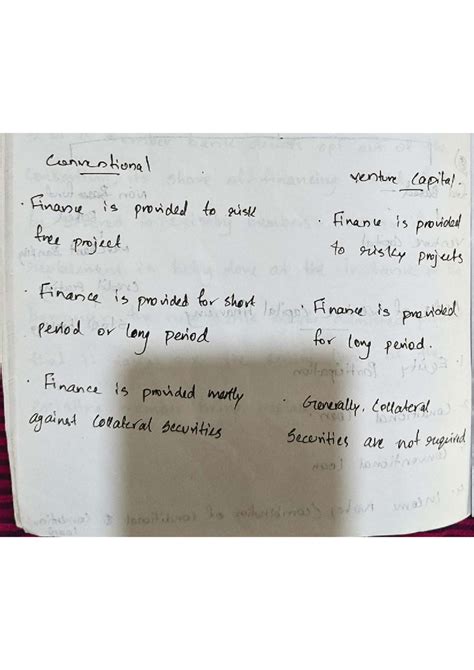 Conventional
Venture Capital.
· Finance is provided to risk
free project
· Finance is provided
to risky projects
· Finance is provided for short
period or long period
· Finance is provided
for long period.
· Finance is provided mostly
against Collateral Securities
· Generally, Collateral
Securities are not required